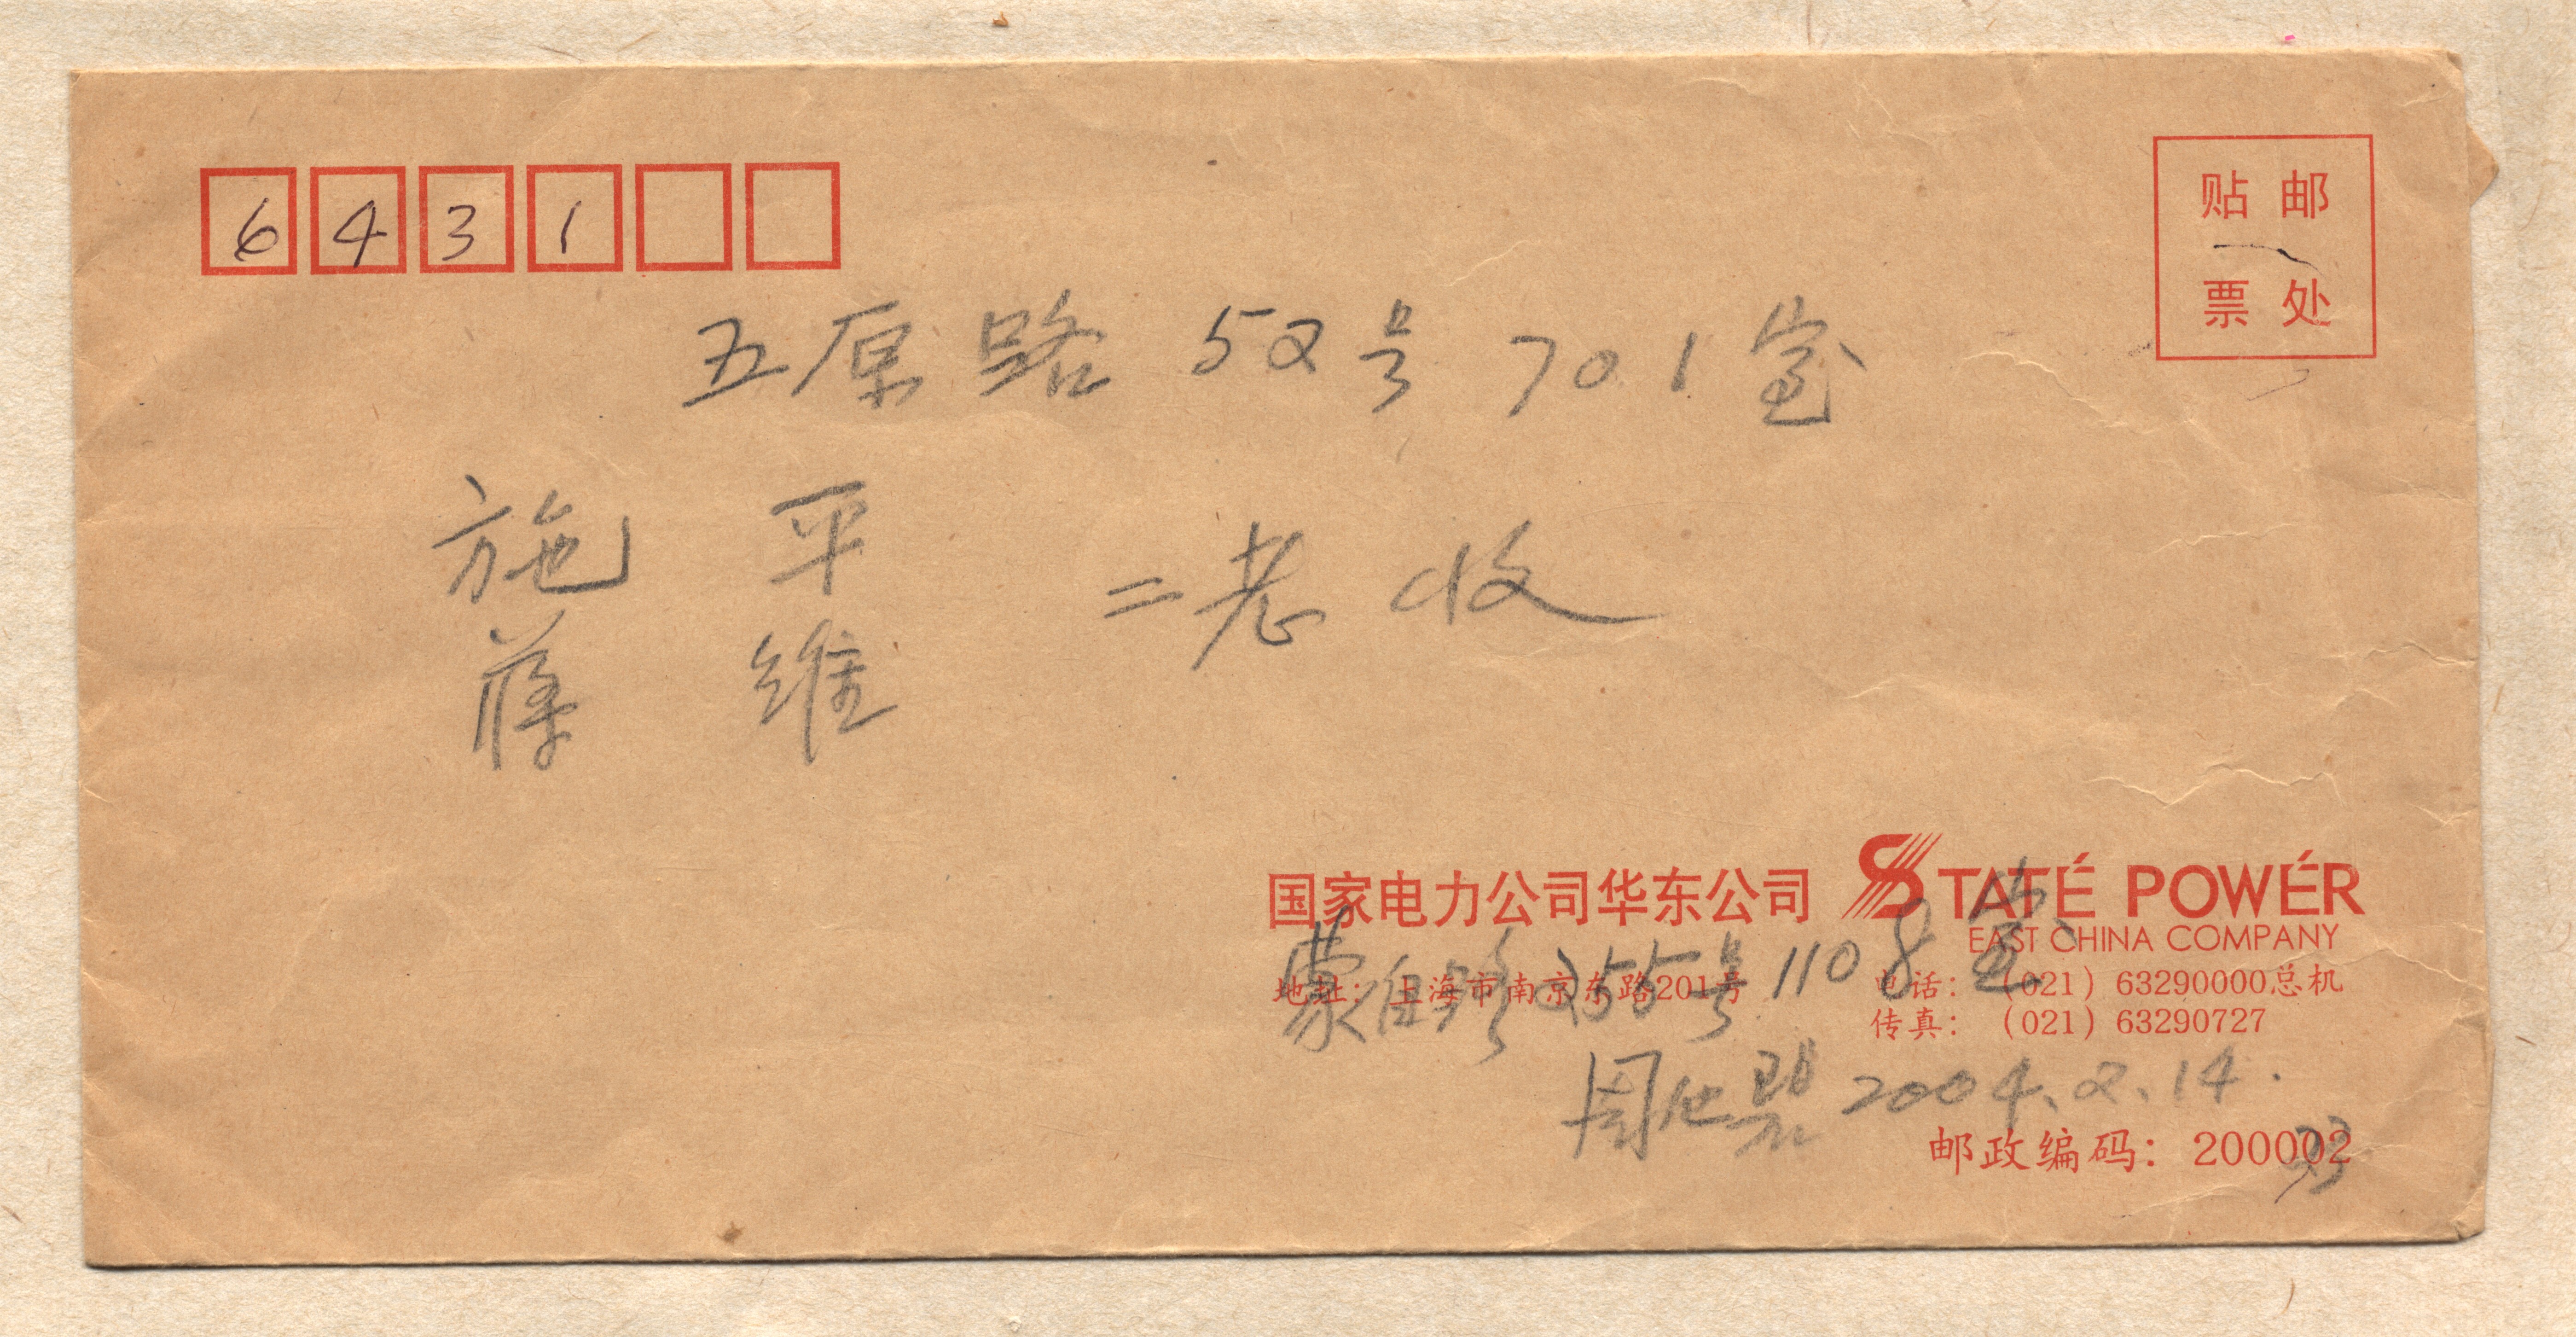 6431
贴邮
票处
五原路52号701室
施平
蒋维
二老收
国家电力公司华东公司
STATE POWER
EAST CHINA COMPANY
地址:上海市南京东路201号
电话:(021)63290000总机
传真:(021)63290727
蒙自路255号1108室
周 2004.2.14.
邮政编码:200002
23